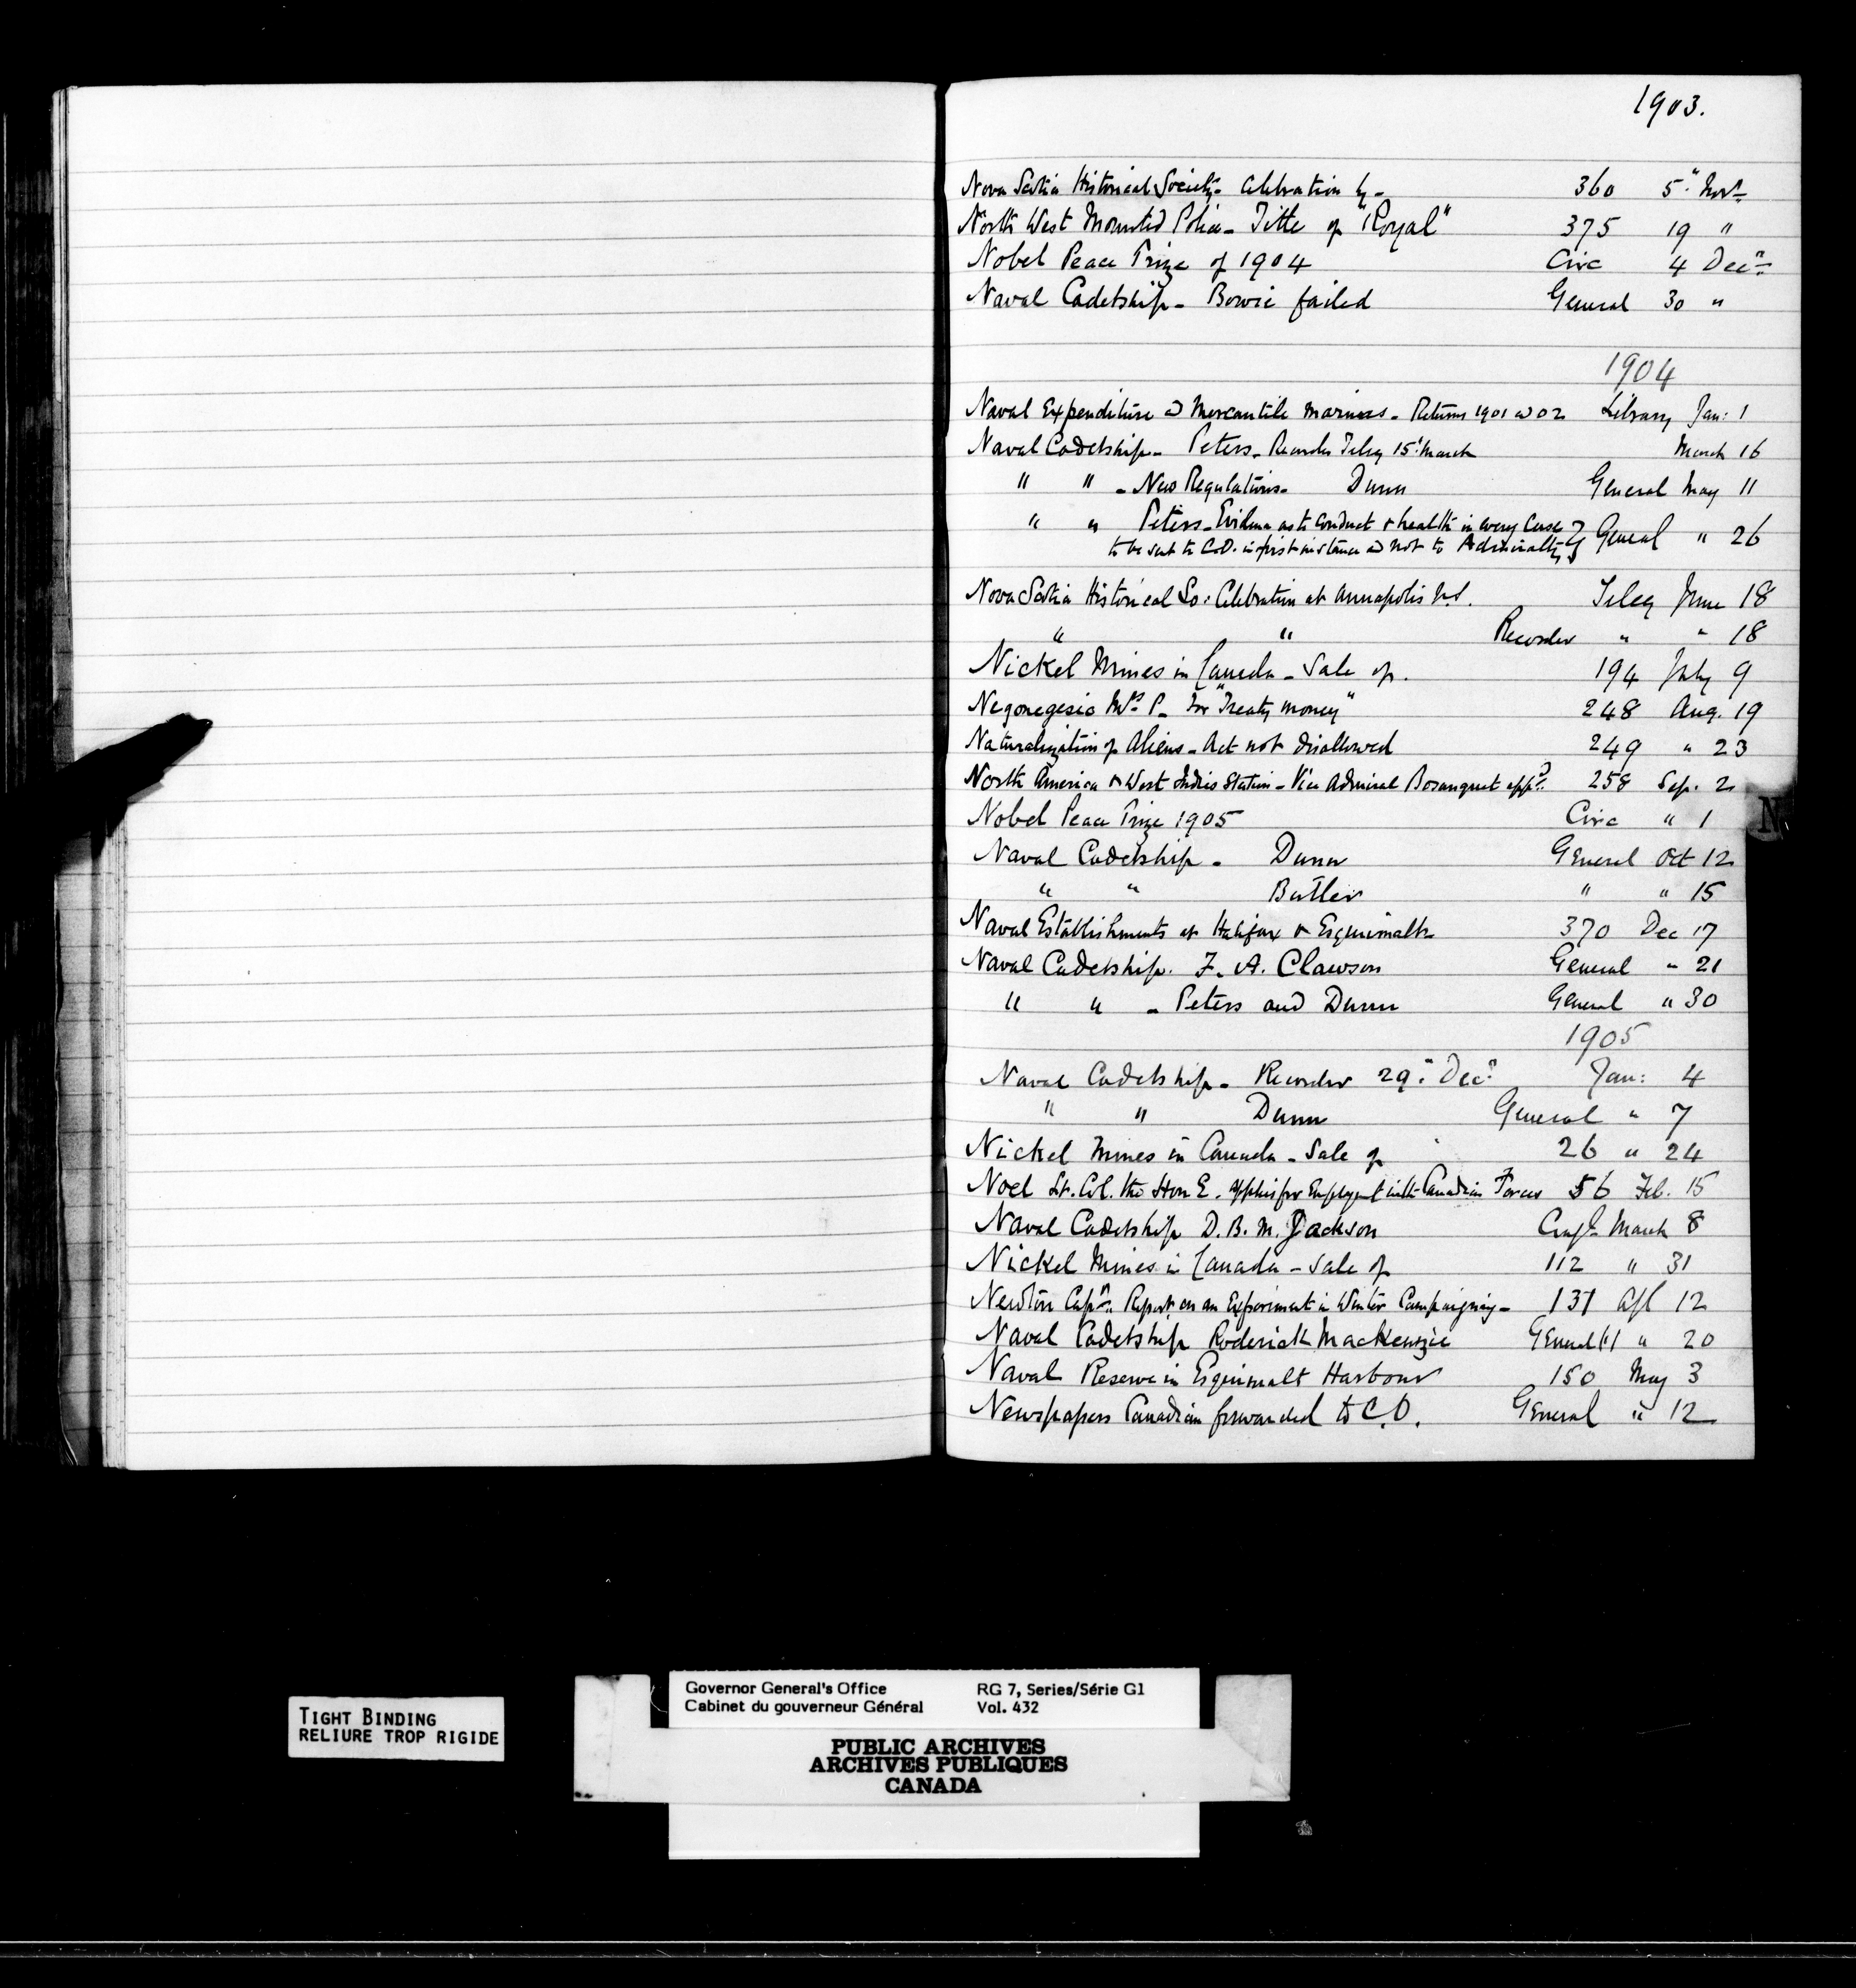 1903.
Nova Scotia Historical Society - Celebration by - 360 5" Novr
North West Mounted Police - Title of "Royal" 375 19 "
Nobel Peace Prize of 1904 Circ 4 Decr
Naval Cadetship - Bowie failed General 30 "
1904
Naval Expenditure & Mercantile Marines - Returns 1901 & 02 Library Jan: 1
Naval Cadetship - Peters - Recorder Teleg 15 March March 16
" " - New Regulations - Dunn General May 11
" " Peters - Evidence as to Conduct & health in every Case
to be sent to C.O. in first instance & not to Admiralty } General " 26
Nova Scotia Historical So: Celebration at Annapolis N.S. Teleg June 18
" " Recorder " " 18
Nickel Mines in Canada - Sale of. 194 July 9
Negonegesic Mrs P - For "Treaty Money" 248 Aug. 19
Naturalization of Aliens - Act not disallowed 249 " 23
North America & West Indies Station - Vice Admiral Bosanquet appd. 258 Sep. 2
Nobel Peace Prize 1905 Circ " 1
N
Naval Cadetship - Dunn General Oct 12
" " Butler " " 15
Naval Establishments at Halifax & Esquimalt - 370 Dec 17
Naval Cadetship. F. A. Clawson General " 21
" " - Peters and Dunn General " 30
1905
Naval Cadetship - Recorder 29" Decr Jan: 4
" " Dunn General " 7
Nickel Mines in Canada - Sale of 26 " 24
Noel Lt. Col. the Hon E. applies for Employmt with Canadian Forces 56 Feb. 15
Naval Cadetship D. B. M. Jackson March 8
Nickel Mines in Canada - Sale of 112 " 31
Newton Captn Report on an Experiment in Winter Campaigning - 131 Apl 12
Naval Cadetship Roderick MacKenzie General " 20
Naval Reserve in Esquimalt Harbour 150 May 3
Newspapers Canadian forwarded to C.O. General " 12
TIGHT BINDING
RELIURE TROP RIGIDE
Governor General's Office RG 7, Series/Série G1
Cabinet du gouverneur Général Vol. 432
PUBLIC ARCHIVES
ARCHIVES PUBLIQUES
CANADA